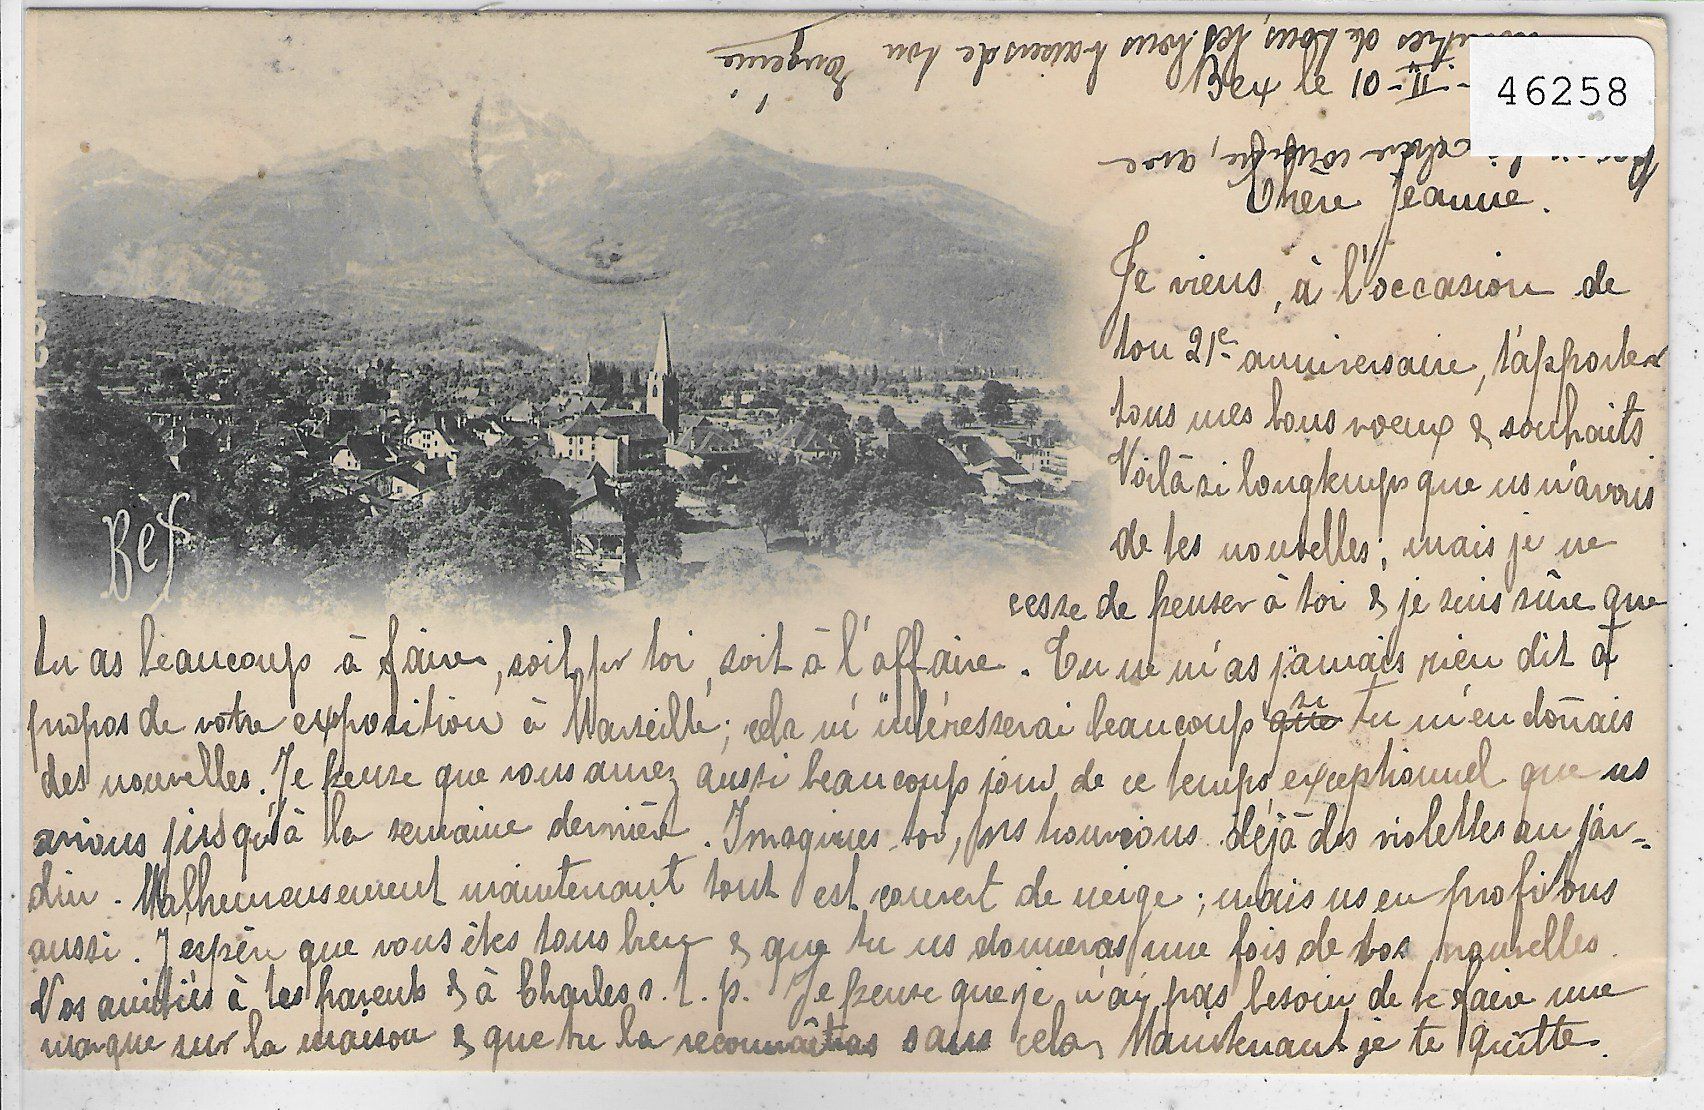 46258
Bex le 10 - II -
Chère Jeanne.
Je viens, à l'occasion de
ton 21e anniversaire, t'apporter
tous mes bons voeux & souhaits
Voilà si longtemps que ns n'avons
de tes nouvelles; mais je ne
cesse de penser à toi & je suis sûre que
tu as beaucoup à faire, soit pr toi, soit à l'affaire. Tu ne m'as jamais rien dit à
propos de votre exposition à Marseille; cela m'intéresserai beaucoup que si tu m'en donnais
des nouvelles. Je pense que vous aurez aussi beaucoup joui de ce temps exceptionnel que ns
avions jusqu'à la semaine dernière. Imagines-toi, ns trouvions déjà des violettes au jar-
din. Malheureusement maintenant tout est couvert de neige; mais ns en profitons
aussi. J'espère que vous êtes tous bien & que tu ns donneras une fois de vos nouvelles.
Nos amitiés à tes parents & à Charles s. t. p. Je pense que je n'ai pas besoin de te faire une
marque sur la maison & que tu la reconnaîtras sans cela. Maintenant je te quitte.
chère cousine, avec
de tous, les bons baisers de ton Eugénie
Bex